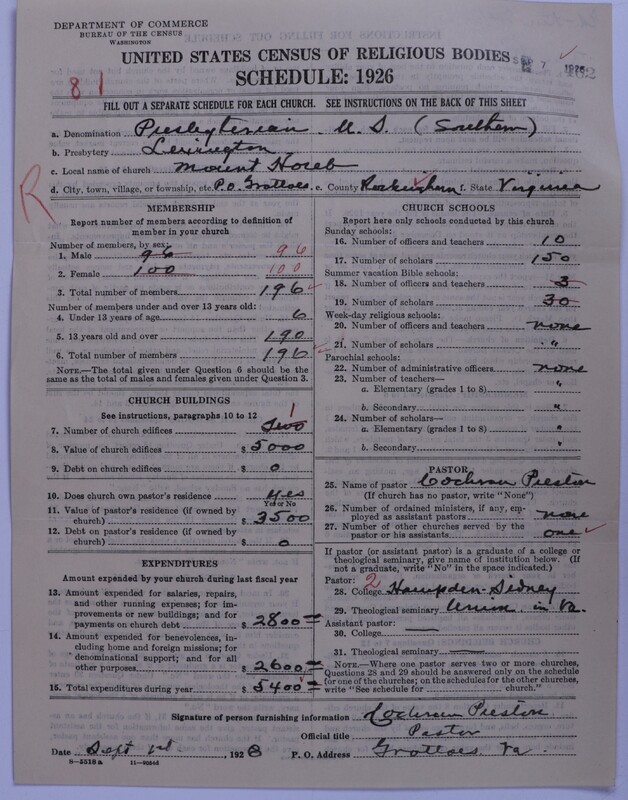 DEPARTMENT OF COMMERCE
BUREAU OF THE CENSUS
WASHINGTON
UNITED STATES CENSUS OF RELIGIOUS BODIES
SCHEDULE: 1926
SEP 7 1926
81
FILL OUT A SEPARATE SCHEDULE FOR EACH CHURCH. SEE INSTRUCTIONS ON THE BACK OF THIS SHEET
a. Denomination Presbyterian U. S. (Southern)
b. Presbytery Lexington
c. Local name of church Mount Horeb
d. City, town, village, or township, etc. P.O. Grottoes e. County Rockingham f. State Virginia
R
MEMBERSHIP
Report number of members according to definition of
member in your church
Number of members, by sex:
1. Male 96 96
2. Female 100 100
3. Total number of members 196
Number of members under and over 13 years old:
4. Under 13 years of age 6
5. 13 years old and over 190
6. Total number of members 196
NOTE.—The total given under Question 6 should be the
same as the total of males and females given under Question 3.
CHURCH BUILDINGS
See instructions, paragraphs 10 to 12
7. Number of church edifices Two 1
8. Value of church edifices $ 5000
9. Debt on church edifices $ 0
10. Does church own pastor's residence yes
Yes or No
11. Value of pastor's residence (if owned by
church) $ 3500
12. Debt on pastor's residence (if owned by
church) $ 0
EXPENDITURES
Amount expended by your church during last fiscal year
13. Amount expended for salaries, repairs,
and other running expenses; for im-
provements or new buildings; and for
payments on church debt $ 2800
14. Amount expended for benevolences, in-
cluding home and foreign missions; for
denominational support; and for all
other purposes $ 2600
15. Total expenditures during year $ 5400
CHURCH SCHOOLS
Report here only schools conducted by this church
Sunday schools:
16. Number of officers and teachers 10
17. Number of scholars 150
Summer vacation Bible schools:
18. Number of officers and teachers 3
19. Number of scholars 30
Week-day religious schools:
20. Number of officers and teachers none
21. Number of scholars "
Parochial schools:
22. Number of administrative officers none
23. Number of teachers—
a. Elementary (grades 1 to 8) "
b. Secondary "
24. Number of scholars—
a. Elementary (grades 1 to 8) "
b. Secondary "
PASTOR
25. Name of pastor Cochran Preston
(If church has no pastor, write "None")
26. Number of ordained ministers, if any, em-
ployed as assistant pastors none
27. Number of other churches served by the
pastor or his assistants one
If pastor (or assistant pastor) is a graduate of a college or
theological seminary, give name of institution below. (If
not a graduate, write "No" in the space indicated.)
Pastor: 2
28. College Hampden-Sidney
29. Theological seminary Union in Va.
Assistant pastor:
30. College
31. Theological seminary
NOTE.—Where one pastor serves two or more churches,
Questions 28 and 29 should be answered only on the schedule
for one of the churches; on the schedules for the other churches,
write "See schedule for church."
Signature of person furnishing information Cochran Preston
Official title Pastor
Date Sept 1st, 1926 P. O. Address Grottoes, Va.
8—5518a 11—9054d